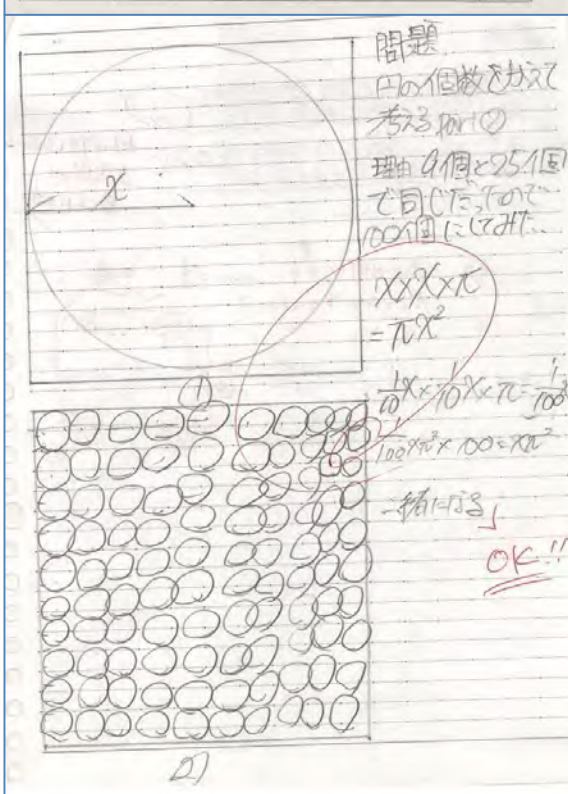 問題
円の個数をかえて
考える part②
理由 9個と25個
で同じだったので
100個にしてみた…
x
x×x×π
=πx²
①
1/10x×1/10x×π=1/100
1/100xπ²×100=xπ²
一緒になる
OK!!
②